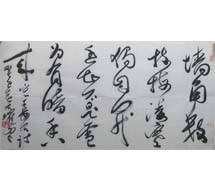 墙角数
枝梅凌寒
独自开
遥知不是雪
为有暗香
来